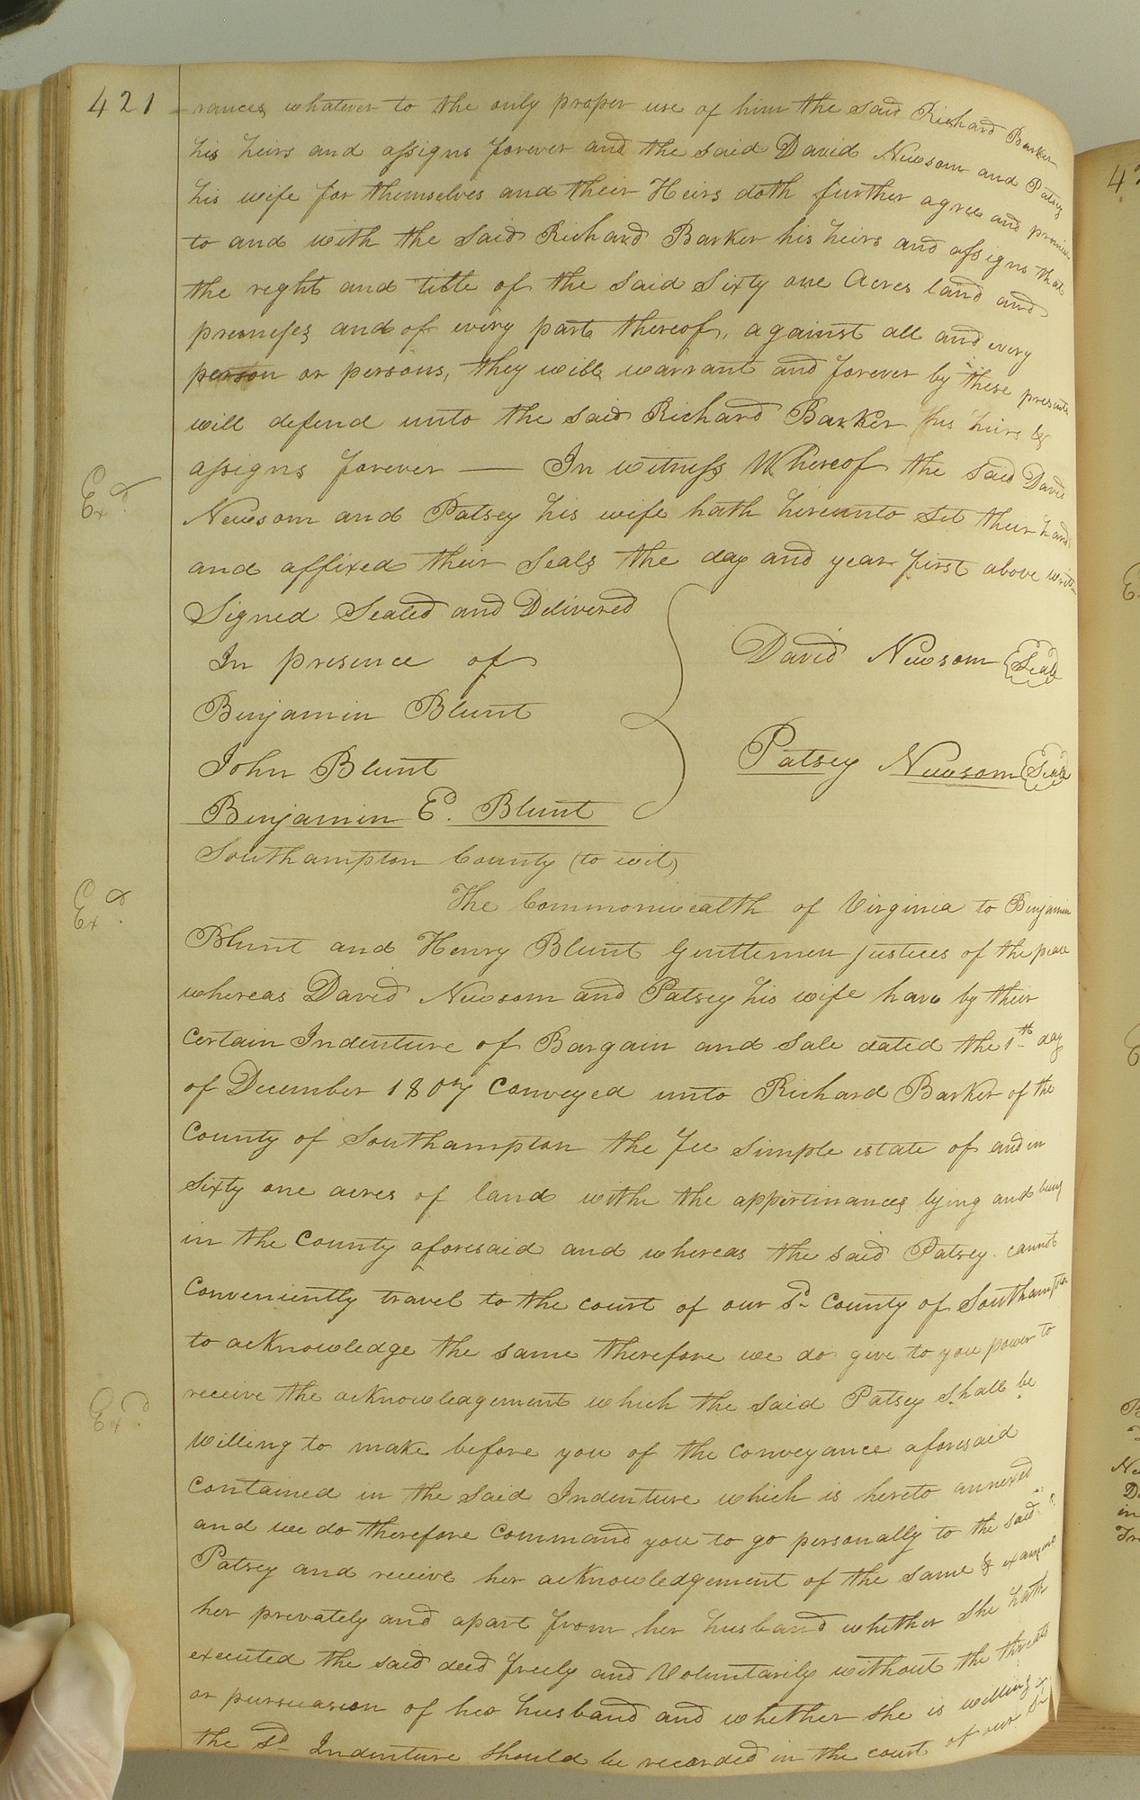 421
rances whatever to the only proper use of him the said Richard Barker
his heirs and assigns forever and the said David Newsom and Patsey
his wife for themselves and their Heirs doth further agree and promise
to and with the said Richard Barker his heirs and assigns that
the right and title of the said Sixty one Acres land and
premises and of every part thereof, against all and every
person or persons, they will warrant and forever by these presents
will defend unto the said Richard Barker his heirs &
assigns forever — In witness Whereof the said David
Newsom and Patsey his wife hath hereunto set their hands
and affixed their Seals the day and year first above written
Signed Sealed and Delivered
In presence of
David Newsom Seal
Benjamin Blunt
John Blunt
Patsey Newsom Seal
Benjamin E. Blunt
Southampton County (to wit)
The Commonwealth of Virginia to Benjamin
Blunt and Henry Blunt Gentlemen justices of the peace
whereas David Newsom and Patsey his wife have by their
certain Indenture of Bargain and Sale dated the 1th day
of December 1807 Conveyed unto Richard Barker of the
County of Southampton the fee simple estate of and in
Sixty one acres of land withe the appertinances lying and being
in the County aforesaid and whereas the said Patsey cannot
Conveniently travel to the court of our sd County of Southampton
to acknowledge the same therefore we do give to you power to
receive the acknowleagement which the said Patsey shall be
willing to make before you of the conveyance aforesaid
contained in the said Indenture which is hereto annexed
and we do therefore command you to go personally to the said
Patsey and receive her acknowledgement of the same & examine
her privately and apart from her husband whether she hath
executed the said deed freely and Voluntarily without the threats
or pursuasion of her husband and whether she is willing
the sd Indenture should be recorded in the court of our
Exd
Exd
Exd